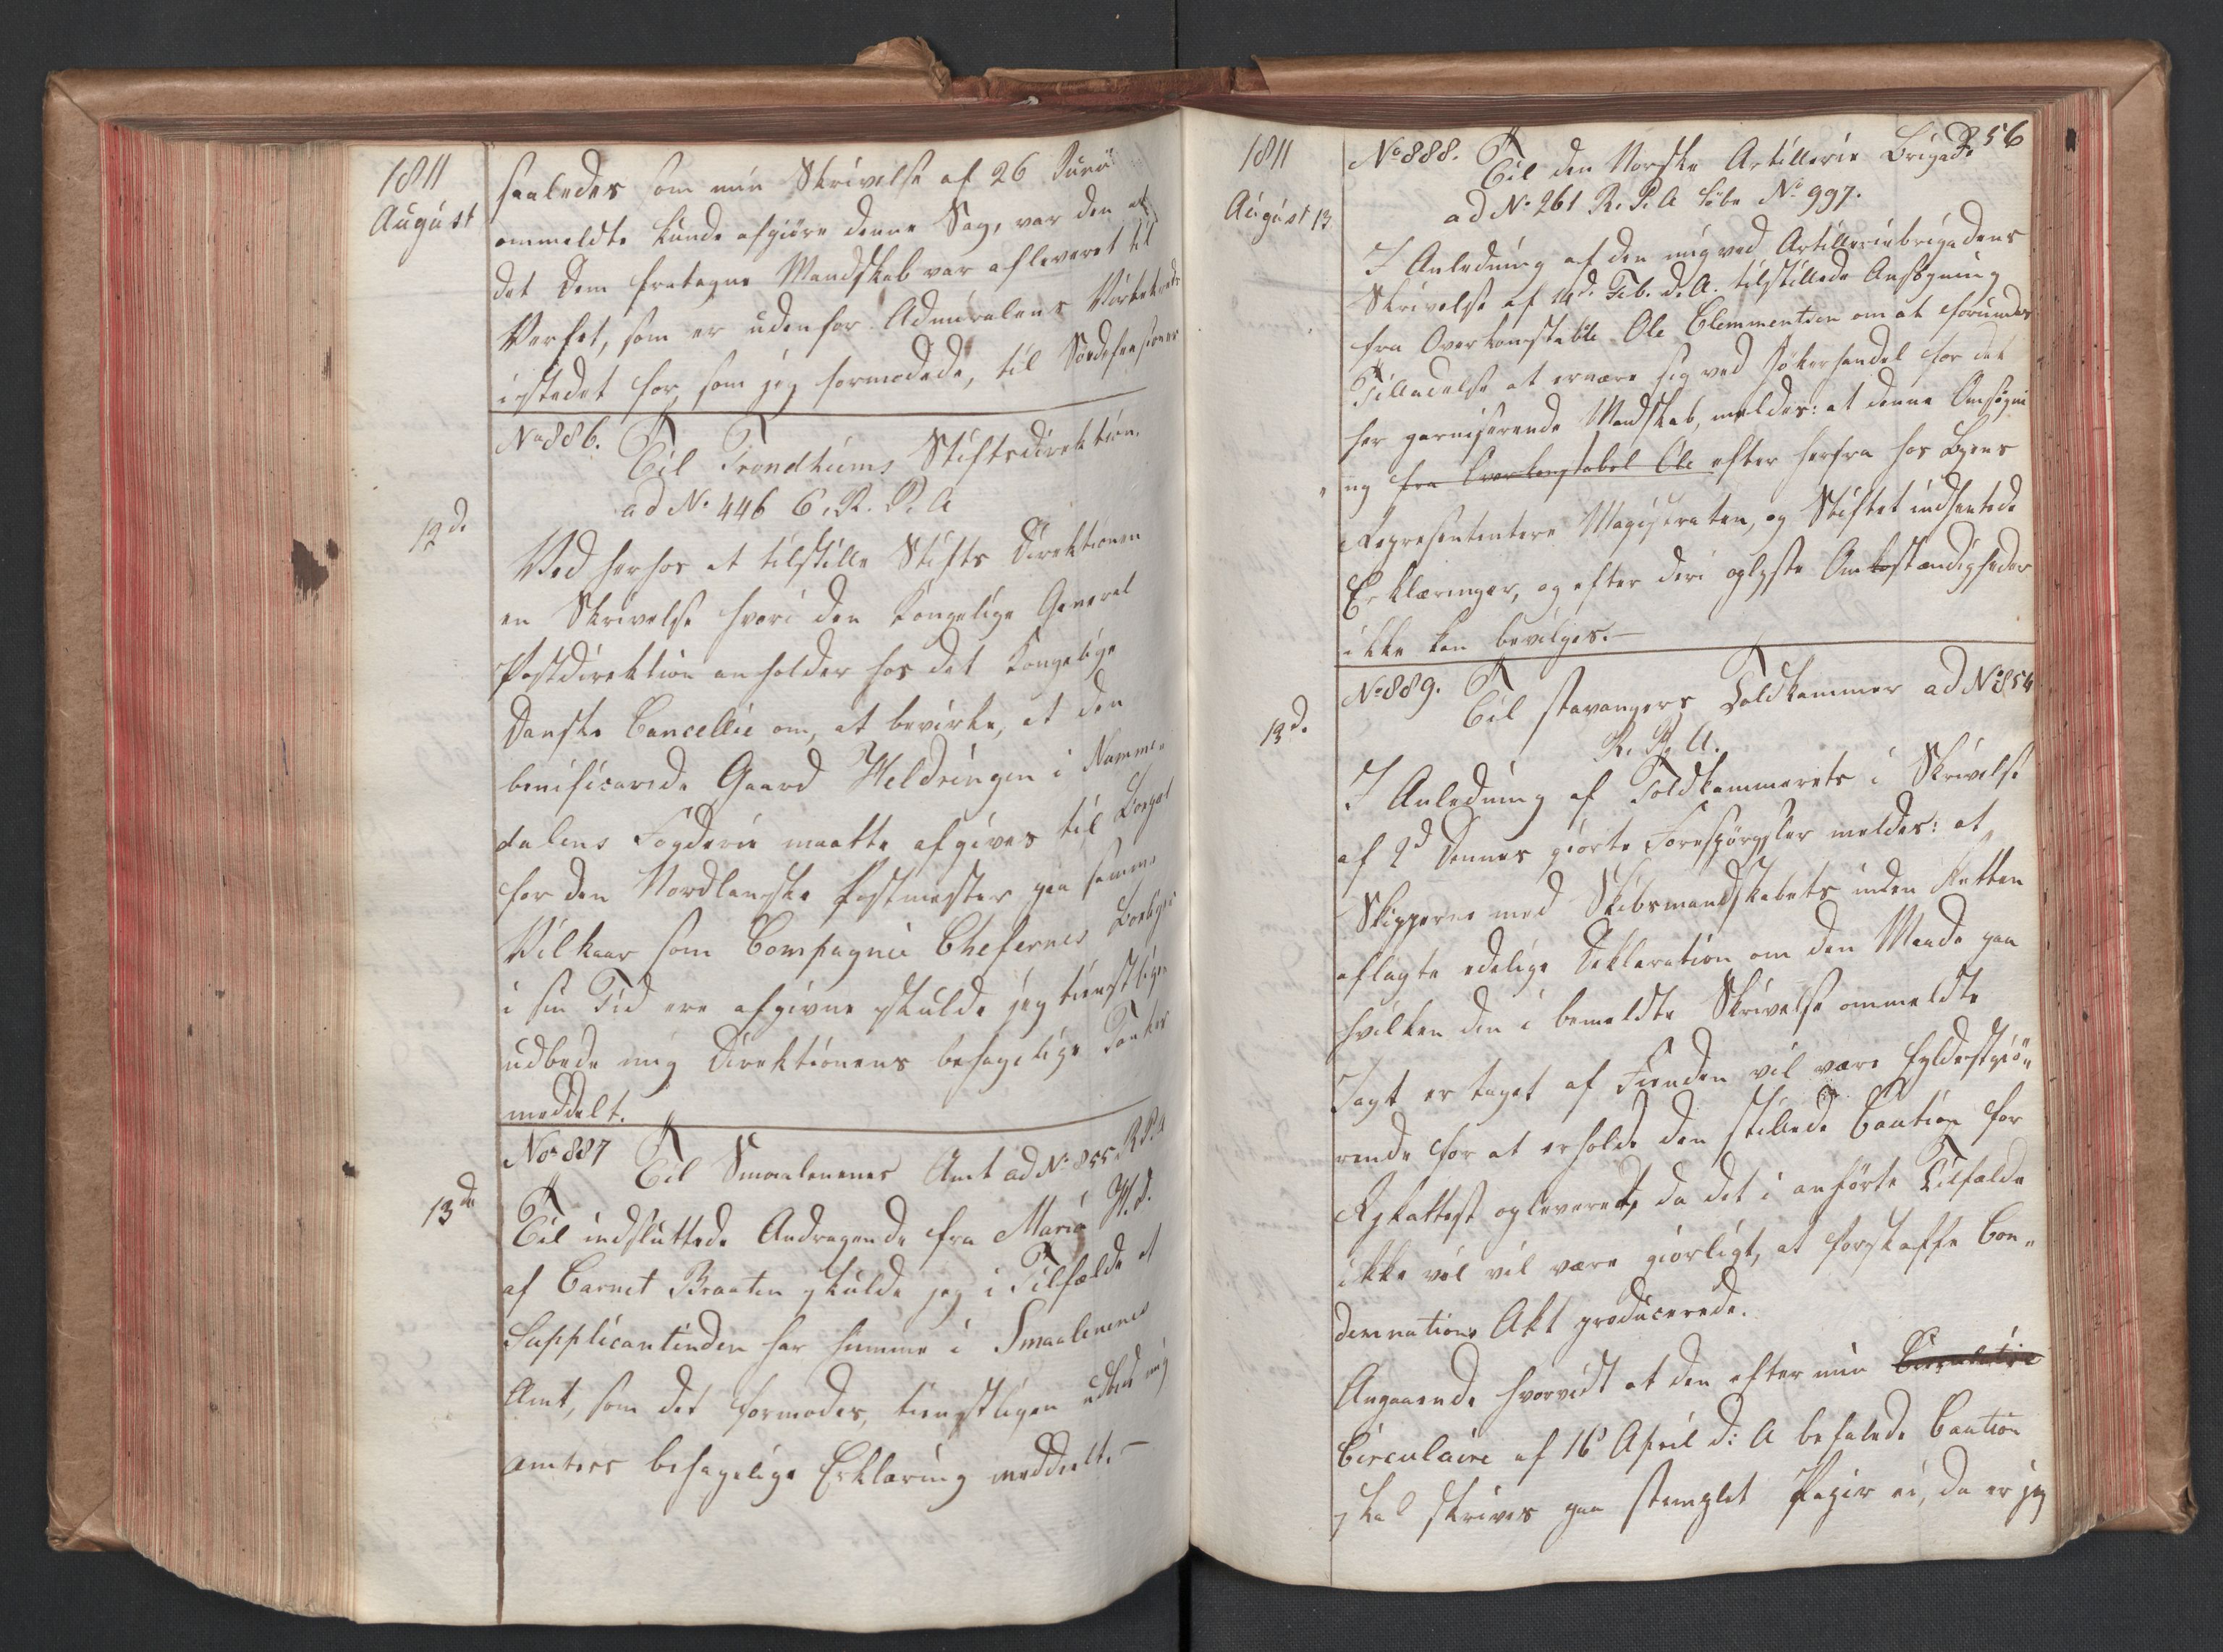 1811
August
saaledes som min Skrivelse af 26 Junii
ommeldte kunde afgiöre denne Sag, var den at
det dem fratagne Mandskab var afleveret til
Verfet, som er udenfor Admiralens Virkekreds
istedet for, som jeg formodede, til Söedefensionen
No 886. Til Trondhiems Stiftsdirektion.
ad No 446 C. R. P. A
12d.
Ved herhos at tilstille Stifts Direktionen
en Skrivelse hvori den kongelige General
Postdirektion anholder hos det kongelige
Danske Cancellie om, at bevirke, at den
beneficerede Gaard Heldringen i Numme-
dalens Fogderie maatte afgives til Boepæl
for den Nordlandske Postmester paa samme
Vilkaar som Compagnie Chefernes Boeliger
i sin Tid ere afgivne skulde jeg tienstligen
udbede mig Direktionens behagelige Tanker
meddelt.
No 887 Til Smaalenenes Amt ad No 855 R. P. A
13de
Til indsluttede Andragende fra Maria H. d.
af Carnet Braaten skulde jeg i Tilfælde at
Supplicantinden har hiemme i Smaalenenes
Amt, som det formodes, tienstligen udbede mig
Amtets behagelige Erklæring meddeelt.—
1811
August 13.
256
No 888. Til den Norske Artillerie Brigade
ad No 261 R. P. A Löbe No 997.
I Anledning af den mig ved Artilleriebrigadens
Skrivelse af 14d. Feb. d. A. tilstillede Ansögning
fra Overkonstabel Ole Clemmentsen om at forundes
Tilladelse at ernære sig ved Hökerhandel for det
her garniserende Mandskab, meldes: at denne Ansögni
ng fra Overkonstabel Ole efter herfra hos Byens
Repræsentantere Magistraten, og Stiftet indhentede
Erklæringer, og efter deri oplyste Omstændigheder
ikke kan bevilges.—
No 889. Til Stavangers Toldkammer ad No 854
R. P. A.
13d.
I Anledning af Toldkammerets i Skrivelse
af 2d Dennes giorte Forespörgsler meldes: at
Skipperne med Skibsmandskabets inden Retten
aflagte edelige Deklaration om den Maade paa
hvilken den i bemeldte Skrivelse ommeldte
Jagt er taget af Fienden vil være fyldestgiö-
rende for at erholde den stillede Caution for
Rykattest opleveret, da det i anförte Tilfælde
ikke vel vil være giörligt, at forskaffe Con-
demnations Akt producerede.
Angaaende hvorvidt at den efter min
Circulaire af 16 April d: A befalede Caution
skal skrives paa stemplet Papir ei, da er jeg